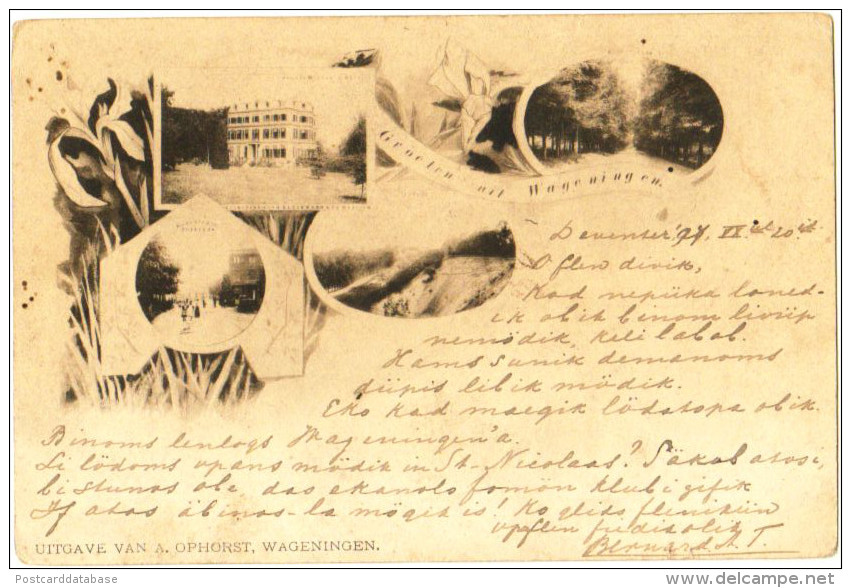 Groeten uit Wageningen.
Deventer, '97, IX id 20 id
O flen divik,
Kod nepüka loned-
ik obik binom livüp
nemödik, keli labob.
Hams sunik demanoms
düpis libik mödik.
Eko kad maegik lödatopa obik.
Binoms lenlogs Wageningen'a.
Li lödoms opans mödik in St-Nicolaas? Säkob atosi,
bi stunos obi, das ekanols fomön klubi gifik
If atos äbinos-la mögik is! Ko glids flenikün
opflen fredik olik
Bernard A. T.
UITGAVE VAN A. OPHORST, WAGENINGEN.
Postcarddatabase
www.delcampe.net